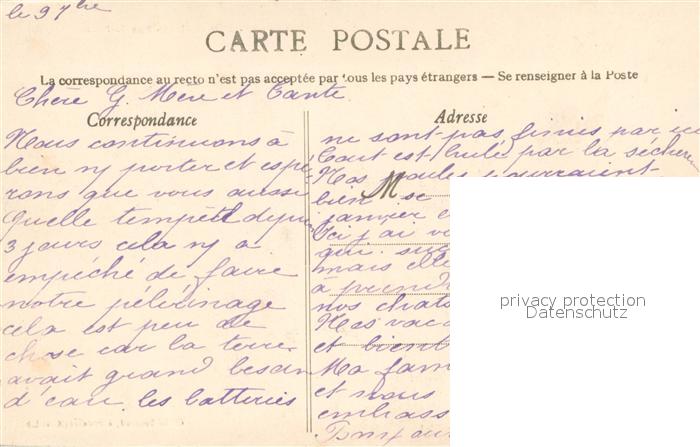 le 9 7bre
CARTE POSTALE
La correspondance au recto n'est pas acceptée par tous les pays étrangers — Se renseigner à la Poste
Chère G. Mère et Tante
Correspondance
Nous continuons à
bien ny porter et espé
rons que vous aussi
Quelle tempête depuis
3 jours cela ny a
empéché de faire
notre pélérinage
cela est peu de
chose car la terre
avait grand besoin
d'eau les batteries
Adresse
ne sont pas finies par
Tout est brulé par la sécher
Nos poules pourraient
M
bien se
janvier
Ici j'ai
qui
mais elle
à prend
nos chats
Nos vaca
et bient
Ma fam
et nous
embrass
privacy protection
Datenschutz